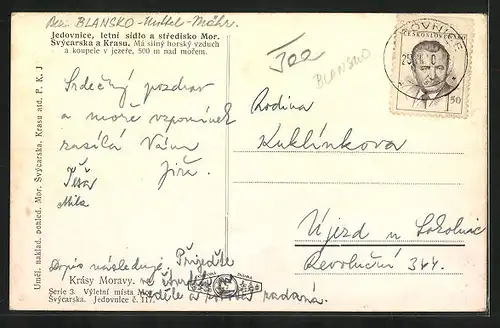 Bez. BLANSKO - Mittel-Mähr.
Jedovnice, letní sídlo a středisko Mor.
Švýcarska a Krasu. Má silný horský vzduch
a koupele v jezeře, 500 m nad mořem.
BLANSKO
JEDOVNICE
ČESKOSLOVENSKO
50
Srdečný pozdrav
a moře vzpomínek
zasílá Vám
Jiří.
Míla
Rodina
Kuklínkova
Újezd u Sokolnic
Revoluční 344.
Dopis následuje. Přijeďte
Krásy Moravy.
Serie 3. Výletní místa Mor.
Švýcarska. Jedovnice č. 117.
Uměl. naklad. pohled. Mor. Švýcarska, Krasu atd. P. K. J